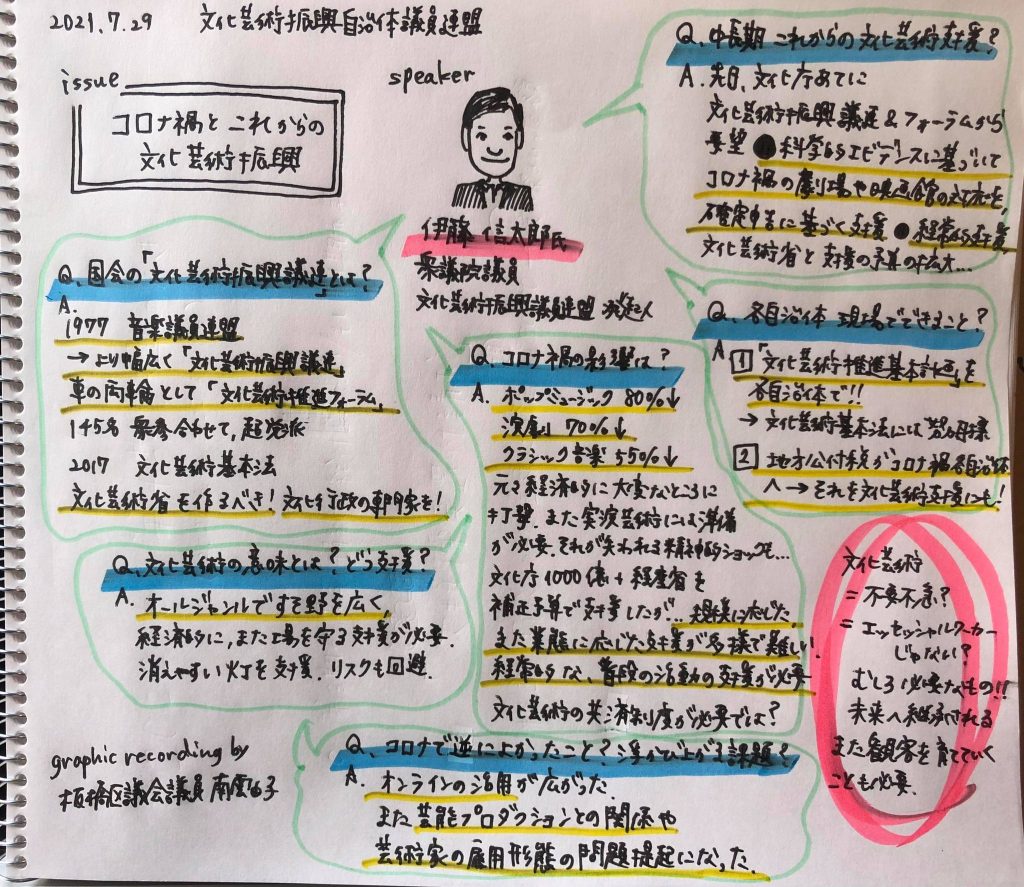 2021.7.29 文化芸術振興自治体議員連盟
issue
コロナ禍と これからの
文化芸術振興
speaker
伊藤 信太郎氏
衆議院議員
文化芸術振興議員連盟 発起人
Q. 国会の「文化芸術振興議連」とは?
A.
1977 音楽議員連盟
→より幅広く「文化芸術振興議連」
車の両輪として「文化芸術推進フォーラム」
145名 衆参合わせて, 超党派
2017 文化芸術基本法
文化芸術省を作るべき! 文化行政の専門家を!
Q. 文化芸術の意味とは? どう支援?
A. オールジャンルですそ野を広く,
経済的に, また工場を守る支援が必要.
消えやすい灯を支援. リスクも回避.
Q. コロナ禍の影響は?
A. ポップミュージック 80%↓
演劇 70%↓
クラシック音楽 55%↓
元々経済的に大変なところに
打撃. また実演芸術には準備
が必要. それが失われる精神的ショックも...
文化庁1000億+経産省を
補正予算で支援したが... 規模に応じた,
また業態に応じた支援が多様で難しい.
経常的な, 普段の活動の支援が必要
文化芸術の共済制度が必要では?
Q. 中長期 これからの文化芸術支援?
A. 先日, 文化庁あてに
文化芸術振興議連&フォーラムから
要望 ●科学的エビデンスに基づいて
コロナ禍の劇場や映画館の対応を,
確定申告に基づく支援 ●経常的支援
文化芸術省と支援の予算の拡大...
Q. 各自治体 現場でできること?
A 1 「文化芸術推進基本計画」を
各自治体で!!
→文化芸術基本法には努力義務
2 地方公付税がコロナ禍各自治体
へ→それを文化芸術支援にも!
文化芸術
=不要不急?
=エッセッシャルワーカー
じゃない?
むしろ必要なもの!!
未来へ継承される
また観客を育てていく
ことも必要.
Q. コロナで逆によかったこと? 浮かび上がる課題?
A. オンラインの活用が広がった.
また芸能プロダクションとの関係や
芸術家の雇用形態の問題提起になった.
graphic recording by
板橋区議会議員 南雲由子